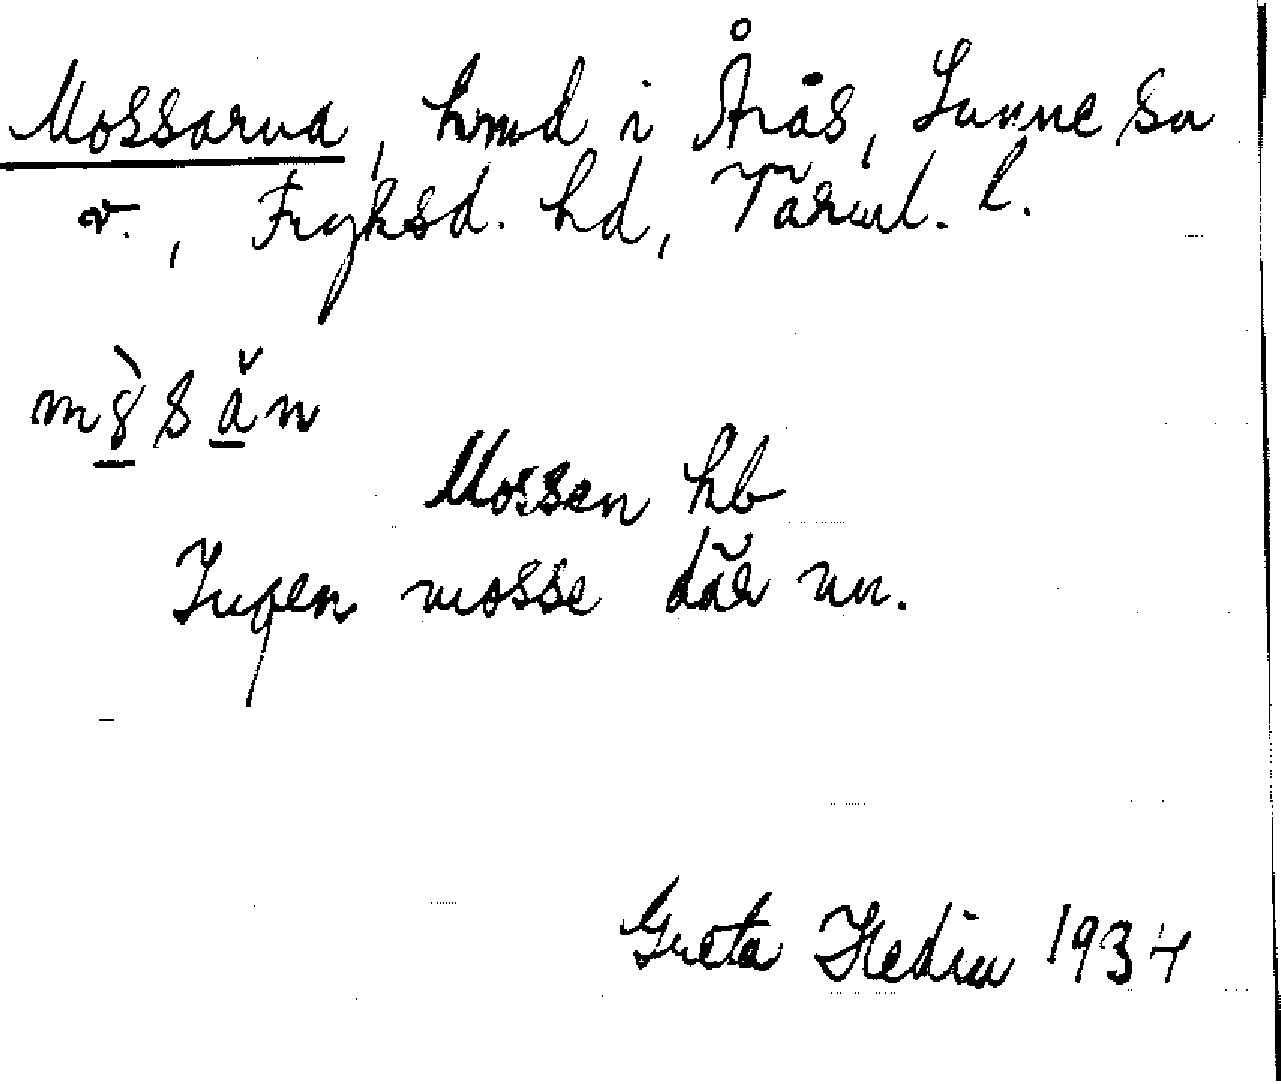 Mossarna, hmd i Årås, Sunne sn
v., Fryksd. hd, Värml. l.
mò̱så̱̆n
Mossen hb
Ingen mosse där nu.
Greta Hedin 1934